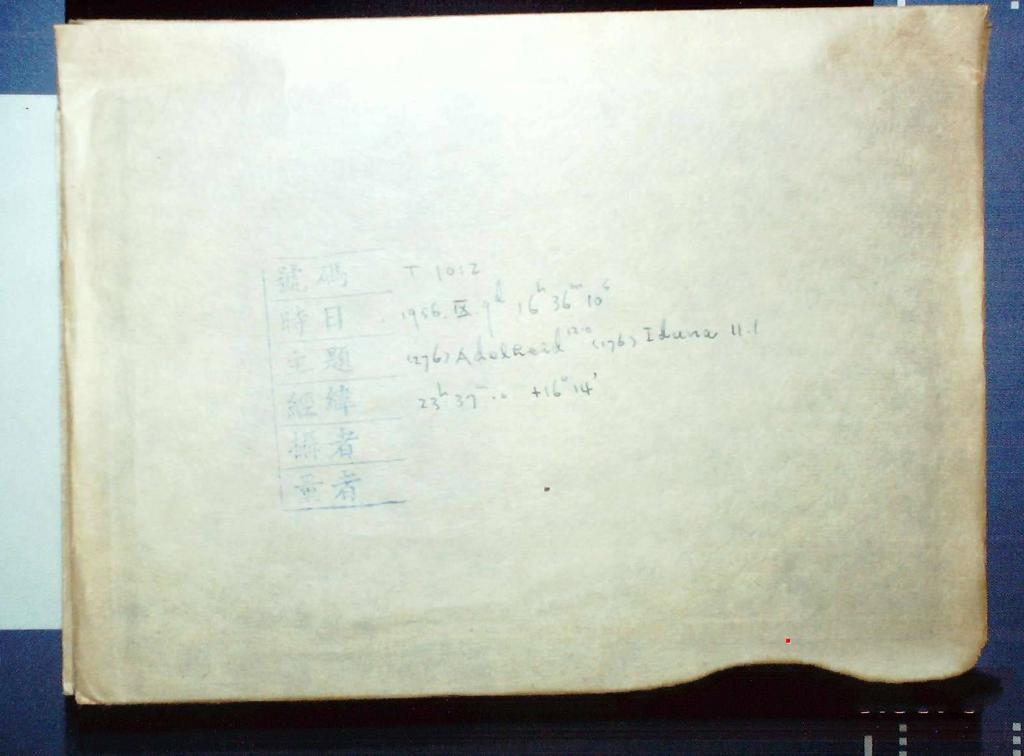 號碼 T 1012
時日 1956. IX. 9d 16h 36m 10s
主題 (276) Adelheid 12.0 (176) Iduna 11.1
經緯 23h 37m.0 +16° 14'
攝者
量者